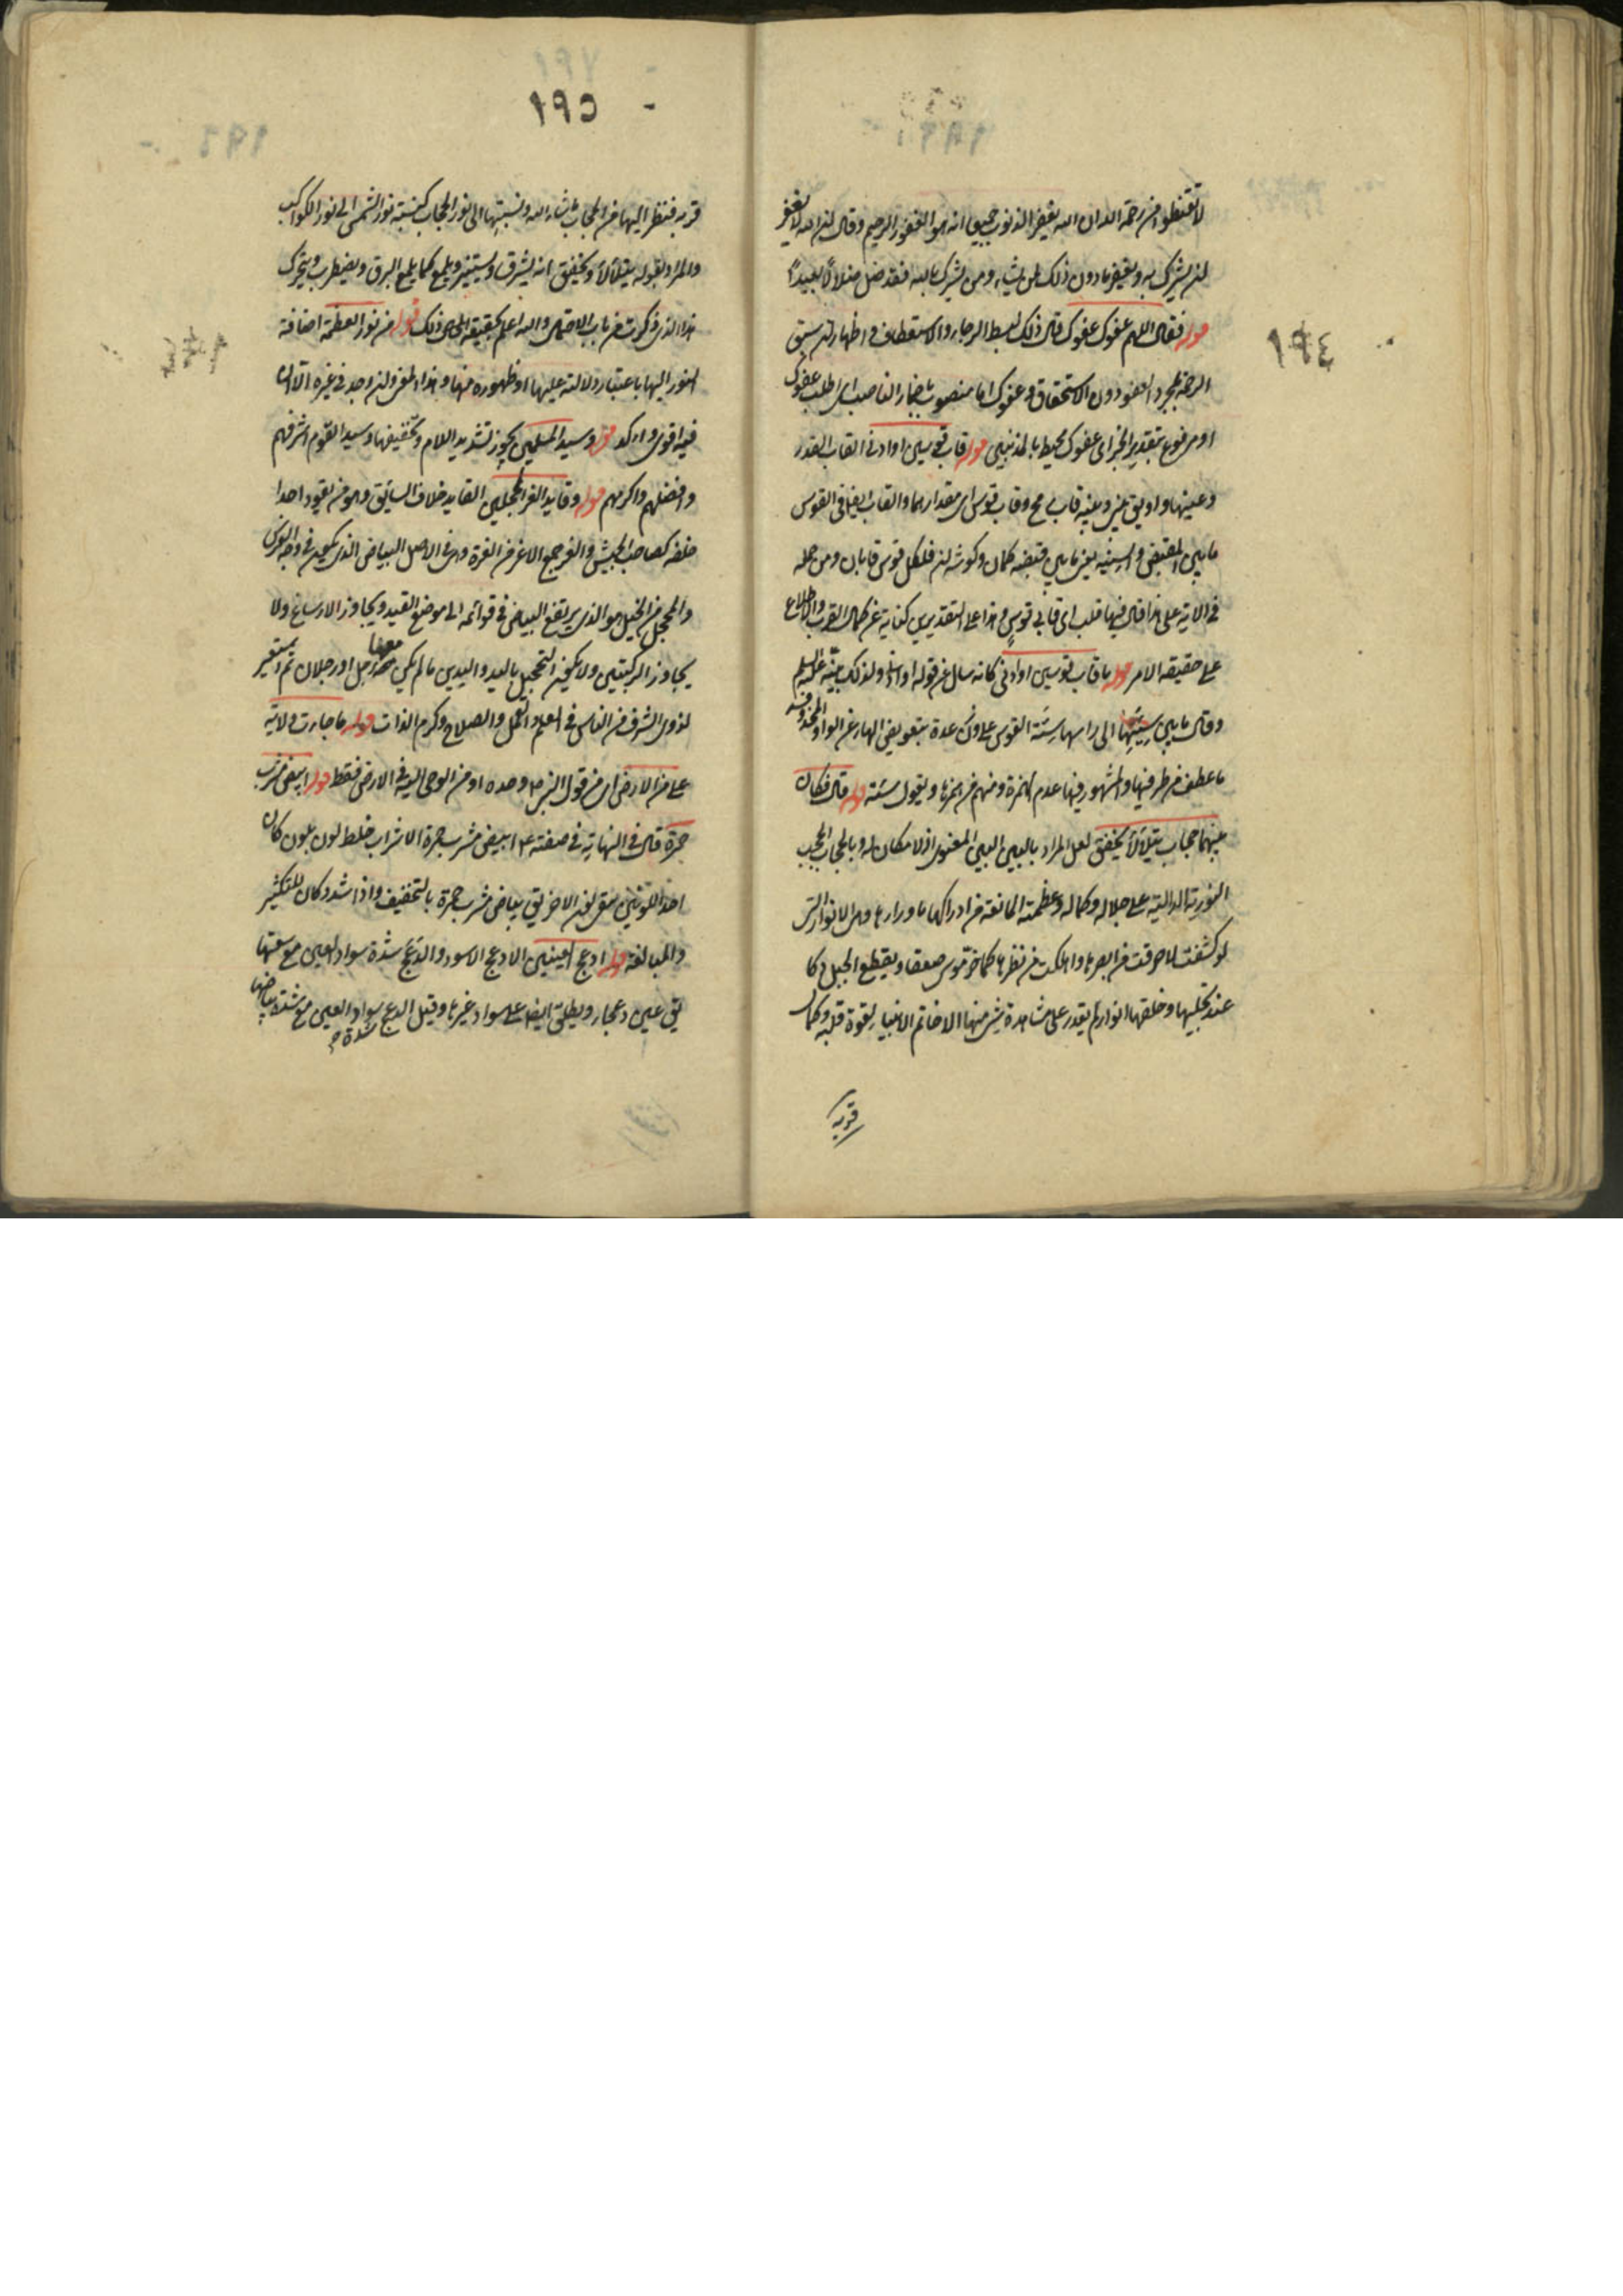 ١٩٤
لا تقنطوا من رحمة الله ان الله يغفر الذنوب جميعا انه هو الغفور الرحيم وقال ان الله لا يغفر
ان يشرك به ويغفر ما دون ذلك لمن يشاء ومن يشرك بالله فقد ضل ضلالا بعيدًا
قوله فقال اللهم عفوك عفوك قال ذلك لبسط الرجاء والاستعطاف واظهار ان سبق
الرحمة لمجرد العفو دون الاستحقاق وعفوك اما منصوب باضمار الناصب اى اطلب عفوك
او مرفوع بتقدير الخبر اى عفوك محيط بالمذنبين قوله قاب قوسين او ادنى القاب القدر
وعينها واو يق بينى وبينه قاب رمح وقاب قوس اى مقدارهما والقاب ايضا فى القوس
ما بين المقبض والسية يعنى ما بين قبضه كمان وكوشه ان فلكل قوس قابان ومن حمله
فى الاية على هذا قال فيها قلب اى قابى قوس وهذا على التقديرين كناية عن كمال القرب والاطلاع
على حقيقة الامر قوله ما قاب قوسين او ادنى كانه سال عن قوله او ادنى ولذلك بينه عليه السلم
وقال ما بين سيتها الى راسها سئة القوس على وزن عدة بتعويض الهاء عن الواو المحذوفة
ما عطف من طرفيها والمشهور فيها عدم الهمزة ومنهم من همزها ويقول سئة قوله قال فكان
بينهما حجاب يتلألأ يخفق لعل المراد بالبين البين المعنوى اذ لا مكان له وبالحجاب الحجب
النورية الدالية على جلاله وكماله وعظمته المانعة من ادراكها ما وراءها وهى الانوار التى
لو كشفت لاحرقت من ابصرها واهلكت من نظرها كما خر موسى صعقا وتقطع الجبل دكا
عند تجليها وخلقها انوار لم يقدر على مشاهدة شى منها الا خاتم الانبياء لقوة قلبه وكمال
قربه
١٩٥
قربه فنظر اليها من الحجاب ما شاء الله ونسبتها الى نور الحجاب كنسبة نور الشمس الى نور الكواكب
والمراد بقوله يتلألأ ويخفق انه يشرق ويستنير ويلمع كما يلمع البرق ويضطرب ويتحرك
هذا الذى ذكرت من باب الاحتمال والله اعلم بحقيقة الحال ذلك قوله من نور العظمة اضافة
النور اليها باعتبار دلالته عليها او ظهوره منها وهذا المعنى وان وجد فى غيره الا انه
فيه اقوى واكد قوله وسيد المسلمين يجوز تشديد اللام وتخفيفها وسيد القوم اشرفهم
وافضلهم واكرمهم قوله وقايد الغر المحجلين القايد خلاف السائق وهو من يقود احدا
خلفه كصاحب الجيش والغر جمع الاغر من الغرة وهى فى الاصل البياض الذى يكون فى وجه الفرس
والمحجل من الخيل هو الذى يرتفع البياض فى قوائمه الى موضع القيد ويجاوز الارساغ ولا
يجاوز الركبتين ولا يكون التحجيل باليد واليدين ما لم يكن معها رجل او رجلان ثم استعير
لذوى الشرف من الناس فى العلم والعمل والصلاح وكرم الذات قوله ما جاءت ولاية
على من الارض اى من قول النبى ص وحده او من الوحى اليه فى الارض فقط قوله ابيض مشرب
حمرة قال فى النهاية فى صفته ع ابيض مشرب حمرة الاشراب خلط لون بلون كان
احد اللونين سقى لون الاخر يق بياض مشرب حمرة بالتخفيف واذا شدد كان للتكثير
والمبالغة قوله ادعج العينين الادعج الاسود والدعج شدة سواد العين مع سعتها
يق عين دعجاء ويطلق ايضا على سواد غيرها وقيل الدعج سواد العين مع شدة بياضها
شدة